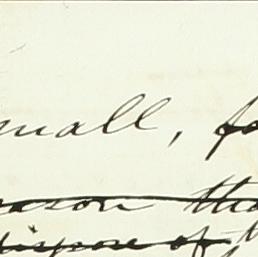 small, fo
reason tha
dispose of t